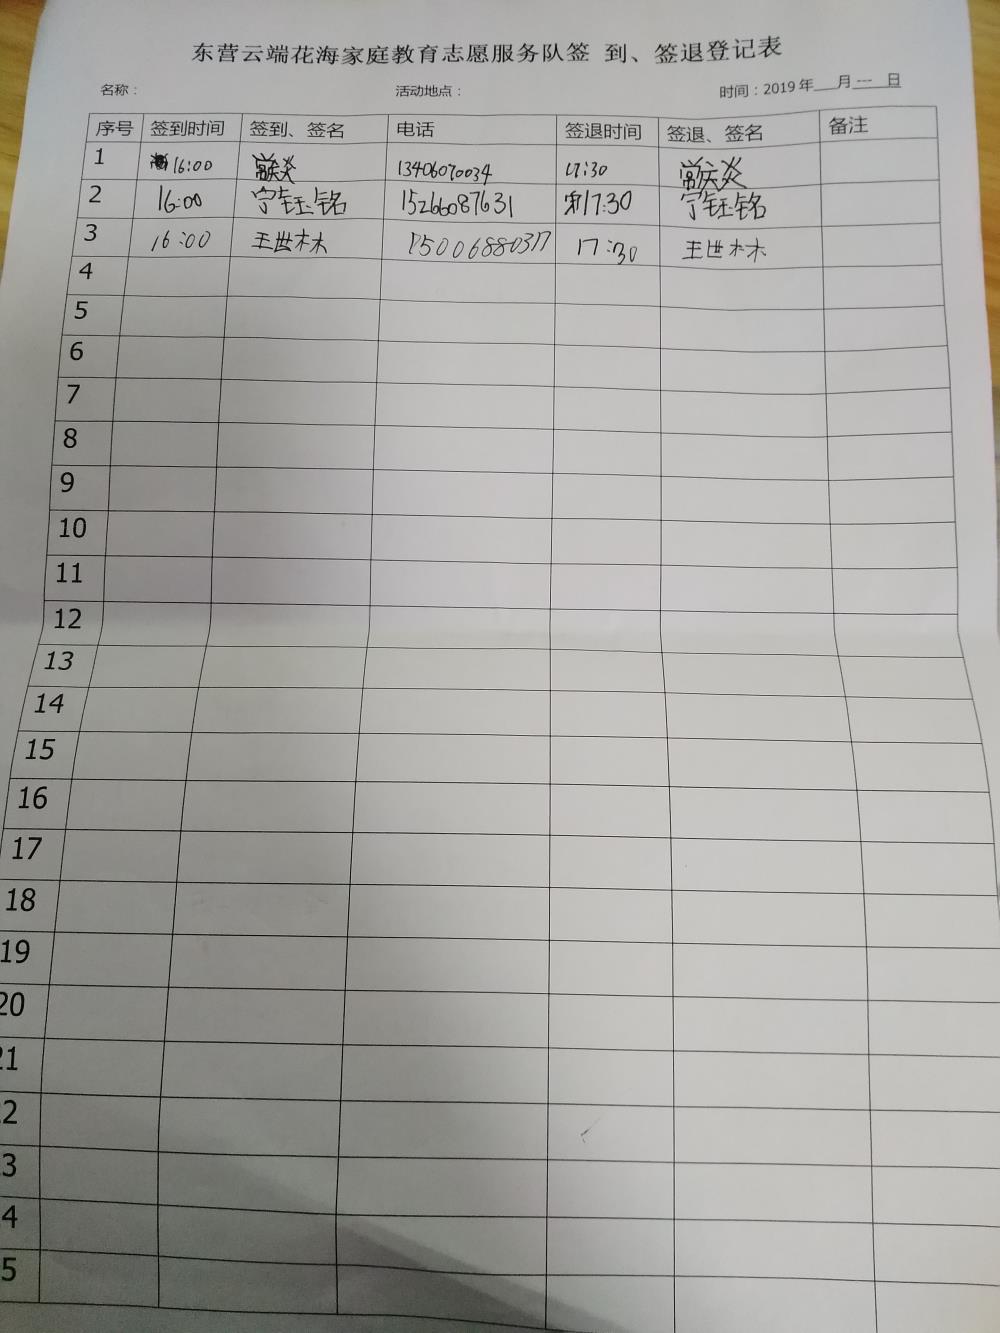 东营云端花海家庭教育志愿服务队签 到、签退登记表
名称： 活动地点： 时间：2019年___月___日
序号 签到时间 签到、签名 电话 签退时间 签退、签名 备注
1 16:00 炎 13406070034 17:30 炎
2 16:00 宁钰铭 15266087631 17:30 宁钰铭
3 16:00 王世林 15006880317 17:30 王世林
4
5
6
7
8
9
10
11
12
13
14
15
16
17
18
19
20
21
2
3
4
5